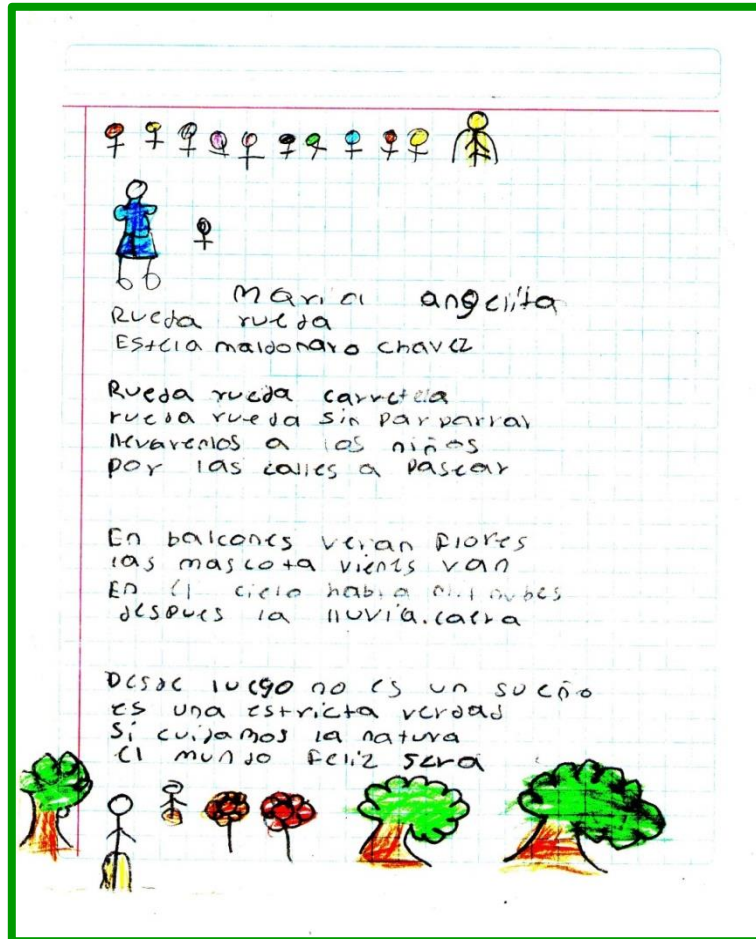 Maria angelita
Rueda rueda
Estela maldonaro chavez
Rueda rueda carretela
rueda rueda sin par parrar
llevaremos a los niños
por las calles a pasear
En balcones veran flores
las mascota vienes van
En el cielo habra mil nubes
despues la lluvia.caera
Desde luego no es un sueño
es una estricta verdad
Si cuidamos la natura
el mundo feliz sera